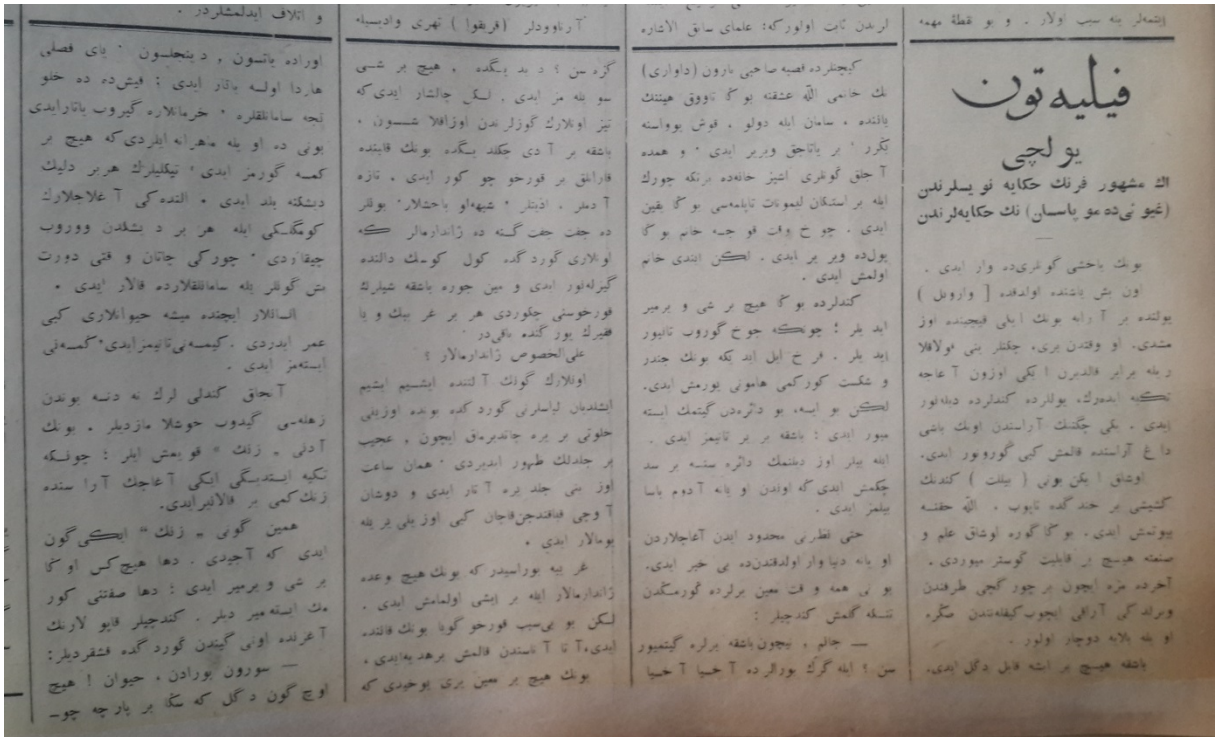 ایتمه‌لر ینه سبب اولار . و بو نقطهٔ مهمه
فیلیه تون
یولچی
اك مشهور فرنك حكایه نویسلرندن
(غیو نی‌ده مو پاسسان) نك حكایه‌لرندن
بونك یاخشی گونلری‌ده وار ایدی .
اون بش یاشنده اولدقده [ وارویل )
یولنده بر آرابه بونك ایكی قیچینده اوز
مشدی. او وقتدن بری، چكنلر ینی قولاقلا
ریله برابر قالدیرن ایكی اوزون آغاجه
تكیه ایده‌رك، یوللرده كندلرده دیله‌نور
ایدی . یكی چكننك آراسندن اونك باشی
داغ آراسنده قالمش كبی گورونور ایدی.
اوشاق ایكن بونی ( بیللت ) كندنك
كشیشی بر خندگده تاپوب ، الله حقنه
بیوتمش ایدی. بو گا گوره اوشاق علم و
صنعته هیچ بر قابلیت گوستر میوردی .
آخرده مزه ایچون بر چور گچی طرفندن
ویرلدگی آراقی ایچوب كیفله‌نندن صكره
او یله بلایه دوچار اولور .
باشقه هیچ بر ایشه قابل دگل ایدی.
لریندن ثابت اولور كه: علمای سابق الاشاره
كیچنلرده قصبه صاحبی بارون (داواری)
نك خانمی الله عشقنه بو گا تاووق هیننك
یاننده ، سامان ایله دولو ، قوش یوواسنه
بكزر ، بر یاتاجق ویریر ایدی . و همده
آجلق گونلری آشپز خانه‌ده برتكه چورك
ایله بر استكان لیمونات تاپلمه‌سی بو گا یقین
ایدی . چوخ وقت قوجه خانم بو گا
پول‌ده ویر یر ایدی . لكن ایندی خانم
اولمش ایدی .
كندلرده بو گا هیچ بر شی و برمیر
اید یلر ؛ چونكه چوخ گوروب تانیور
اید یلر . قرخ ایل اید یكه بونك جندر
و شكست كورکمی هامونی یورمش ایدی.
لكن بو ایسه، بو دائره‌دن گیتمك ایسته
میور ایدی ؛ باشقه بر یر تانیمز ایدی .
ایله بیلر اوز دیلنمك دائره سنه بر سد
چكمش ایدی كه اوندن او یانه آدوم باسا
بیلمز ایدی .
حتی نظرنی محدود ایدن آغاجلاردن
او یانه دنیا وار اولدقندن‌ده بی خبر ایدی.
بونی همه وقت معین یرلرده گورمكدن
تنگه گلمش كندچیلر :
— جانم ، نیچون باشقه یرلره گیتمیور
سن ؟ ایله گرك بورالرده آخسیا آخسیا
آرناوودلر (فریقوا ) نهری وادیسیله
گزه سن ؟ دیدیگده ، هیچ بر شی
سویله مز ایدی . لكن چالشار ایدی‌كه
تیز اونلارك گوزلرندن اوزاقلاشسون .
باشقه بر آدی چكلدیگده بونك قلبنده
قارانلق بر قورخو چوكور ایدی . تازه
آدملر . اذیتلر . شبهه‌لو باخشلار . بونلر
ده جفت جفت گشته ده ژاندارمالر كه
اونلاری گوردگده كول كوسك دالنده
گیزله‌نور ایدی و مین جوره باشقه شیلرك
قورخوسنی چكوردی هر بر غریبك و یا
فقیرك یور گنده باقی‌در
علی‌الخصوص ژاندارمالار ؟
اونلارك گونك آلتنده ایشیم ایشیم
ایشلدیان لباسلرنی گوردگده بونده اوزینی
خلوتی بر یره چاتدیرماق ایچون . عجیب
بر جلدلك ظهور ایدیردی . همان ساعت
اوزینی جلد یره آتار ایدی و دوشان
آوچی قباقندجن قاچان كبی اوز یلی یر یله
یومالار ایدی .
غریبه بوراسیدر كه بونك هیچ وعده
ژاندارمالار ایله بر ایشی اولمامش ایدی .
لكن بو بی‌سبب قورخو گویا بونك قاننده
ایدی، آتا آناسندن قالمش بر هدیه ایدی.
بونك هیچ بر معین یری یوخیدی كه
و اتلاف ایدلمشلردر .
اوراده یاتسون ، دینجلسون . یای فصلی
هاردا اولسه یاتار ایدی ؛ قیش‌ده ده خلو
تجه سامانلقلره ، خرمانلاره گیروب یاتارایدی
بونی ده او یله ماهرانه ایلردی كه هیچ بر
كمسه گورمز ایدی . تیكلیلرك هر بر دلیك
دیشكنه بلد ایدی . النده‌كی آغلاجلارك
كومگلكی ایله هر بر دیشكدن ووروب
چیقاردی . چوركی چاتان وقتی دورت
بش گونلر یله سامانلقلارده قالار ایدی .
انسانلار ایچنده میشه حیوانلاری كبی
عمر ایدردی . كیمسه‌نی تانیمز ایدی، كمسه‌نی
ایسته‌مز ایدی .
آنجاق كندلی لرك نه دنسه بوندن
زهله‌سی گیدوب خوشلامازدیلر . بونك
آدنی „ زنك “ قویمش ایلر ؛ چونكه
تكیه ایتدیگی ایكی آغاجك آراسنده
زنك كمی بر قالانیر ایدی.
همین گونی „ زنك “ ایكی گون
ایدی كه آجیدی . دها هیچ كس او گا
بر شی و یرمیر ایدی ؛ دها صفتنی گور
مك ایسته میر دیلر . كندچیلر قاپولارنك
آغزنده اونی گیتدن گوردگده قشقردیلر:
— سورون بورادن ، حیوان ! هیچ
اوچ گون دگل كه سكا بر پارچه چو-